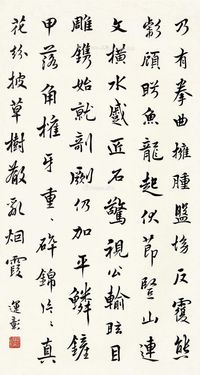 乃有拳曲擁腫盤坳反覆熊
彪顧盼魚龍起伏節豎山連
文橫水蹙匠石驚視公輸眩目
雕鐫始就剞劂仍加平鱗鏟
甲落角摧牙重〻碎錦片〻真
花紛披草樹散亂烟霞 運彰